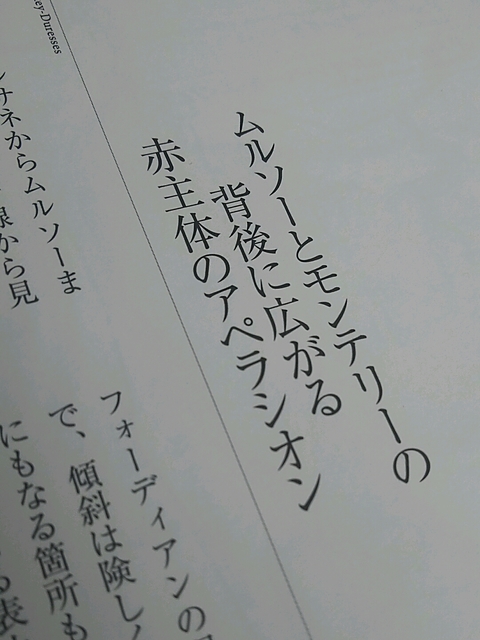 ey-Duresses
ムルソーとモンテリーの
背後に広がる
赤主体のアペラシオン
サネからムルソーま
から見
フォーディアンの
で、傾斜は険し
にもなる箇所も
る表